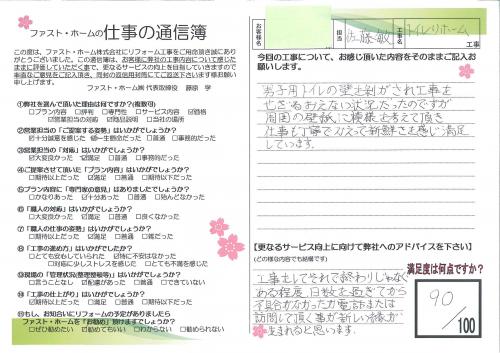 ファスト・ホームの仕事の通信簿
この度は、ファスト・ホーム株式会社にリフォーム工事をご用命頂き誠にあり
がとうございました。この通信簿は、お客様に弊社の工事内容について感じた
ままに評価していただく事で、更なるサービスの向上を目指していきますので
率直なご意見をご記入頂き、同封の返信用封筒にてご返送下さいます様お願い
申し上げます。
ファスト・ホーム㈱ 代表取締役 藤原 学
①弊社を選んで頂いた理由は何ですか?(複数可)
□プラン内容 □評判 □専門性 □サービス内容 ☑価格
☑営業担当の対応 ☑商品説明 □当社の場所
②営業担当の「ご提案する姿勢」はいかがでしょうか?
☑十分誠意を感じた □一生懸命だった □普通 □事務的だった
③営業担当の「対応」はいかがでしょうか?
☑大変良かった ☑満足 □普通 □事務的だった
④ご提案させて頂いた「プラン内容」はいかがでしたか?
□期待以上だった ☑満足 □普通 □期待以下だった
⑤プラン内容に「専門家の意見」はありましたか?
□かなりあった ☑十分あった □普通 □殆んどなかった
⑥「職人の対応」はいかがでしょうか?
□大変良かった ☑満足 □普通 □良くなかった
⑦「職人の仕事の姿勢」はいかがでしょうか?
□期待以上だった ☑満足 □普通 □雑だった
⑧「工事の進め方」はいかがでしたか?
□とても安心していられた ☑特に不安はなかった
□対応に少しストレスを感じた □とても不満を感じた
⑨現場の「管理状況(整理整頓等)」はいかがでしょうか?
□言うことなし ☑配慮があった □普通 □できていない
⑩「工事の仕上がり」はいかがでしょうか?
□期待以上だった ☑満足 □普通 □期待以下だった
⑪もし、お知合いにリフォームの予定がありましたら
ファスト・ホームを「お勧め」頂けますでしょうか?
□ぜひ勧めたい ☑勧めてもいい □わからない □勧められない
お客様名
担当
佐藤 敏
工事名
トイレリホーム
工事
今回の工事について、お感じ頂いた内容をそのままご記入お
願いします。
男子用トイレの壁土剥がされ工事も
やむおえない状況だったのですが
周囲の壁紙に模様も考えて頂き
仕事も丁寧でかえって新鮮さを感じ満足
しています。
【更なるサービス向上に向けて弊社へのアドバイスを下さい】
(どの様な内容でも結構です)
工事をしてそれで終わりじゃなく
ある程度 日数を過ぎてから
不具合がなかったか電話または
訪問して頂く事が新しい縁が
生まれると思います。
満足度は何点ですか?
90
/100